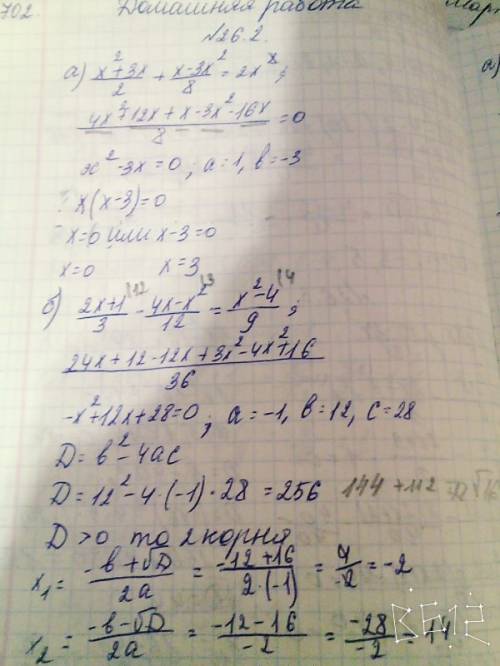 702 Домашняя работа
№26.2.
а) (x²+3x)/2 + (x-3x²)/8 = 2x;
(4x²+12x+x-3x²-16x)/8 = 0
x²-3x=0; a=1, b=-3
x(x-3)=0
x=0 или x-3=0
x=0 x=3
б) (2x+1)/3 |12 - (4x-x²)/12 |3 = (x²-4)/9 |4;
(24x+12-12x+3x²-4x²+16)/36
-x²+12x+28=0; a=-1, b=12, c=28
D=b²-4ac
D=12²-4·(-1)·28=256 144+112
D>0, то 2 корня
x₁= (-b+√D)/2a = (-12+16)/(2·(-1)) = 4/-2 = -2
x₂= (-b-√D)/2a = (-12-16)/-2 = -28/-2 = 14